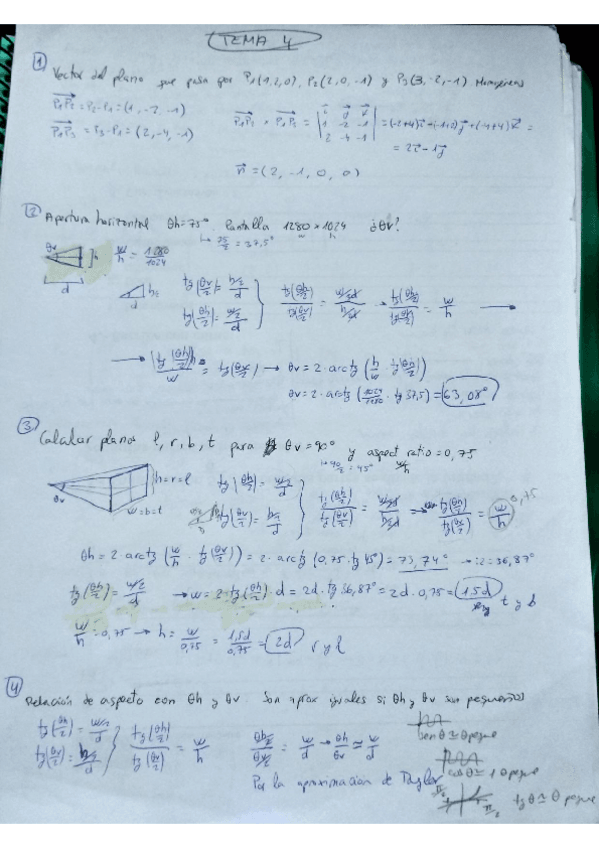 TEMA 4
1 Vector del plano que pasa por P1(1,2,0), P2(2,0,-1) y P3(3,-2,-1). Homogéneas
P1P2 = P2-P1 = (1,-2,-1)
P1P3 = P3-P1 = (2,-4,-1)
P1P2 × P1P3 = | i j k | 1 -2 -1 | 2 -4 -1 | = (-2+4)i + (-1+2)j + (-4+4)k =
= 2i - 1j
n = (2, -1, 0, 0)
2 Apertura horizontal θh=75° Pantalla 1280×1024 ¿θv?
→ 75/2 = 37,5° w h
θv h w/h = 1280/1024
d
tg(θh/2) = w/2/d
tg(θv/2) = h/2/d
tg(θh/2)/tg(θv/2) = w/2·d/h/2·d → tg(θh/2)/tg(θv/2) = w/h →
→ tg(θh/2)h/w = tg(θv/2) → θv = 2·arctg(h/w · tg(θh/2))
θv = 2·arctg(1024/1280 · tg 37,5) = 63,08°
3 Calcular planos l, r, b, t para θv=90° y aspect ratio = 0,75
→ 90/2 = 45° w/h
h=r=l
θv w=b=t
tg(θh/2) = w/2/d
tg(θv/2) = h/2/d
tg(θh/2)/tg(θv/2) = w/2·d/h/2·d → tg(θh/2)/tg(θv/2) = w/h 0,75
θh = 2·arctg(w/h · tg(θv/2)) = 2·arctg(0,75·tg 45°) = 73,74° → :2 = 36,87°
tg(θh/2) = w/2/d → w = 2·tg(θh/2)·d = 2d·tg 36,87° = 2d·0,75 = 1,5d t y b
w/h = 0,75 → h = w/0,75 = 1,5d/0,75 = 2d r y l
4 Relación de aspecto con θh y θv. Son aprox iguales si θh y θv son pequeños
tg(θh/2) = w/2/d
tg(θv/2) = h/2/d
tg(θh/2)/tg(θv/2) = w/h
→ θh/θv ≃
Por la aproximación de Taylor
sen θ ≃ θ peque
cos θ ≃ 1 θ peque
tg θ ≃ θ peque